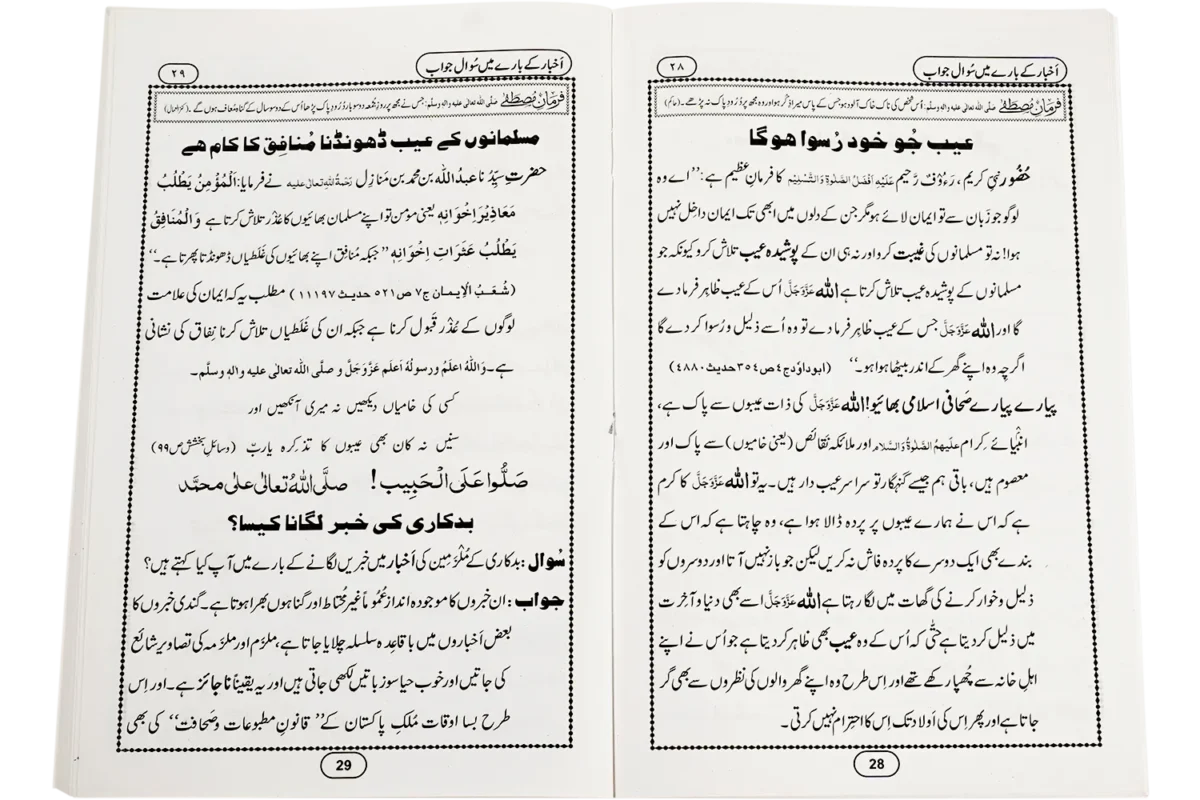 اَخبار کے بارے میں سُوال جواب
۲۸
فرمانِ مُصطَفٰے صلی اللہ تعالٰی علیہ والہ وسلم: اُس شخص کی ناک خاک آلود ہو جس کے پاس میرا ذِکر ہو اور وہ مجھ پر دُرُودِ پاک نہ پڑھے۔ (حاکم)
عیب جُو خود رُسوا ہوگا
حُضُور نبیِّ کریم، رَءُوفٌ رَّحیم عَلَیْہِ اَفْضَلُ الصَّلٰوۃِ وَالتَّسْلِیْم کا فرمانِ عظیم ہے: ’’اے وہ
لوگو جو زَبان سے تو ایمان لائے ہو مگر جن کے دلوں میں ابھی تک ایمان داخِل نہیں
ہوا! نہ تو مسلمانوں کی غیبت کرو اور نہ ہی ان کے پوشیدہ عیب تلاش کرو کیونکہ جو
مسلمانوں کے پوشیدہ عیب تلاش کرتا ہے اللہ عَزَّوَجَلَّ اُس کے عیب ظاہِر فرما دے
گا اور اللہ عَزَّوَجَلَّ جس کے عیب ظاہِر فرما دے تو وہ اُسے ذلیل و رُسوا کر دے گا
اگرچِہ وہ اپنے گھر کے اندر بیٹھا ہوا ہو۔‘‘ (ابوداوٗد ج٤ ص٣٥٤ حدیث ٤٨٨٠)
پیارے پیارے صَحافی اسلامی بھائیو! اللہ عَزَّوَجَلَّ کی ذات عیبوں سے پاک ہے،
انبِیائے کِرام علَیہِمُ الصَّلٰوۃُ وَالسَّلام اور ملائکہ نَقائص (یعنی خامیوں) سے پاک اور
معصوم ہیں، باقی ہم جیسے گنہگار تو سراسر عیب دار ہیں۔ یہ تو اللہ عَزَّوَجَلَّ کا کرم
ہے کہ اس نے ہمارے عیبوں پر پردہ ڈالا ہوا ہے، وہ چاہتا ہے کہ اس کے
بندے بھی ایک دوسرے کا پردہ فاش نہ کریں لیکن جو باز نہیں آتا اور دوسروں کو
ذلیل و خوار کرنے کی گھات میں لگا رہتا ہے اللہ عَزَّوَجَلَّ اسے بھی دنیا و آخِرت
میں ذلیل کر دیتا ہے حتّٰی کہ اُس کے وہ عیب بھی ظاہر کر دیتا ہے جو اُس نے اپنے
اہلِ خانہ سے چُھپا رکھے تھے اور اِس طرح وہ اپنے گھر والوں کی نظروں سے بھی گر
جاتا ہے اور پھر اس کی اَولاد تک اِس کا احتِرام نہیں کرتی۔
28
اَخبار کے بارے میں سُوال جواب
۲۹
فرمانِ مُصطَفٰے صلی اللہ تعالٰی علیہ والہ وسلم: جس نے مجھ پر روزِ جُمُعہ دو سو بار دُرُودِ پاک پڑھا اُس کے دو سو سال کے گناہ مُعاف ہوں گے۔ (کنزالعمال)
مسلمانوں کے عیب ڈھونڈنا مُنافِق کا کام ہے
حضرتِ سیِّدُنا عبدُاللہ بن محمد بن مَنازِل رَحمۃُ اللہِ تعالٰی علیہ نے فرمایا: اَلْمُؤْمِنُ یَطْلُبُ
مَعَاذِیْرَ اِخْوَانِہٖ یعنی مؤمن تو اپنے مسلمان بھائیوں کا عُذر تلاش کرتا ہے وَالْمُنَافِقُ
یَطْلُبُ عَثَرَاتِ اِخْوَانِہٖ ’’ جبکہ مُنافِق اپنے بھائیوں کی غَلَطیاں ڈھونڈتا پھرتا ہے۔‘‘
(شُعَبُ الْاِیمان ج٧ ص٥٢١ حدیث ١١١٩٧) مطلب یہ کہ ایمان کی علامت
لوگوں کے عُذْر قَبول کرنا ہے جبکہ ان کی غَلَطیاں تلاش کرنا نِفاق کی نشانی
ہے۔ وَاللہُ اعلَمُ ورسولُہٗ اَعلَم عَزَّوَجَلَّ و صلَّی اللہ تعالٰی علیہ واٰلہٖ وسلَّم۔
کسی کی خامیاں دیکھیں نہ میری آنکھیں اور
سنیں نہ کان بھی عیبوں کا تذکِرہ یاربّ (وسائلِ بخشش ص۹۹)
صَلُّوا عَلَی الْحَبِیب! صلَّی اللہُ تعالٰی علٰی محمَّد
بدکاری کی خبر لگانا کیسا؟
سُوال: بدکاری کے مُلْزَمین کی اَخبار میں خبریں لگانے کے بارے میں آپ کیا کہتے ہیں؟
جواب: ان خبروں کا موجودہ انداز عُمُوماً غیر مُحتاط اور گناہوں بھرا ہوتا ہے۔ گندی خبروں کا
بعض اَخباروں میں باقاعِدہ سلسلہ چلایا جاتا ہے، ملزَم اور ملزَمہ کی تصاویر شائع
کی جاتیں اور خوب حیا سوز باتیں لکھی جاتی ہیں اور یہ یقیناً ناجائز ہے۔ اور اِس
طرح بسا اوقات مُلکِ پاکستان کے ’’ قانونِ مطبوعات و صَحافت‘‘ کی بھی
29